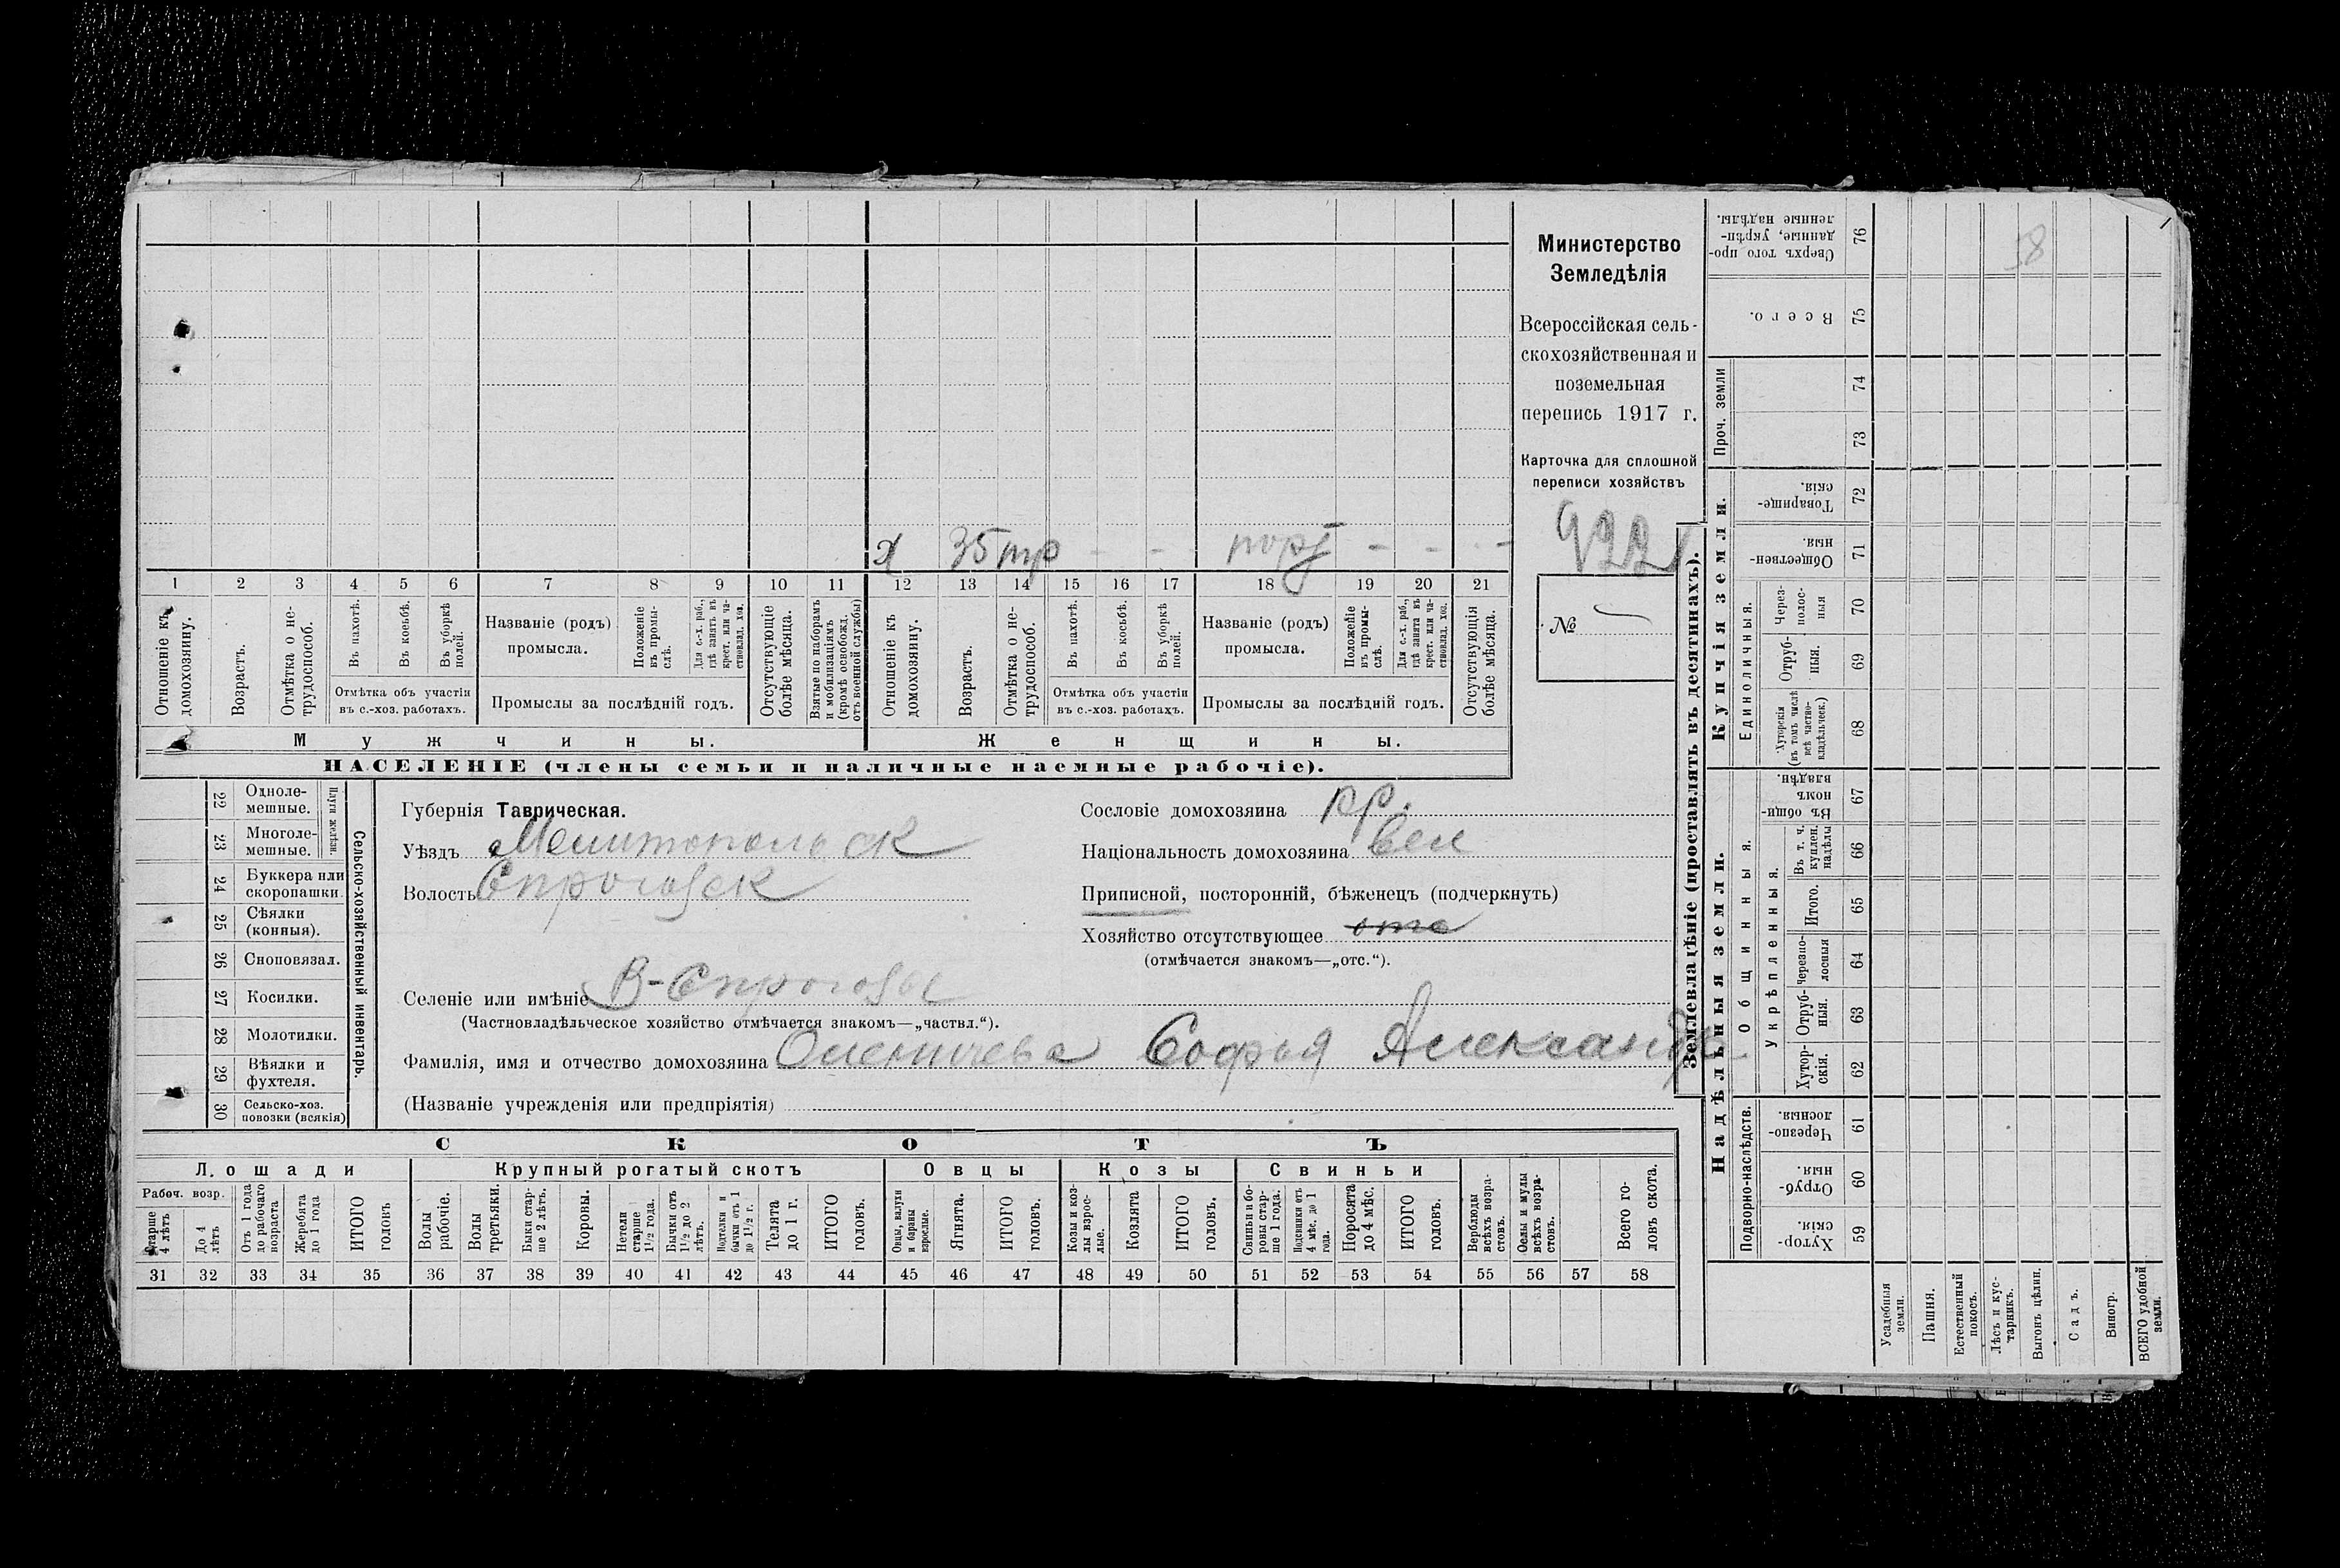 58
Министерство
Земледѣлія
Всероссійская сель-
скохозяйственная и
поземельная
перепись 1917 г.
Карточка для сплошной
переписи хозяйствъ
922
№
х 35 тр - - порт - - -
1 2 3 4 5 6 7 8 9 10 11 12 13 14 15 16 17 18 19 20 21
Отношеніе къ домохозяину.
Возрастъ.
Отмѣтка о не-трудоспособ.
Въ пахотѣ.
Въ косьбѣ.
Въ уборкѣ полей.
Отмѣтка объ участіи
въ с.-хоз. работахъ.
Названіе (родъ)
промысла.
Положеніе въ промы-слѣ.
Для с.-х. раб., гдѣ занятъ въ крест. или ча-стновлад. хоз.
Промыслы за послѣдній годъ.
Отсутствующіе болѣе мѣсяца.
Взятые по наборамъ и мобилизаціямъ (кромѣ освобожд. отъ военной службы)
Отношеніе къ домохозяину.
Возрастъ.
Отмѣтка о не-трудоспособ.
Въ пахотѣ.
Въ косьбѣ.
Въ уборкѣ полей.
Отмѣтка объ участіи
въ с.-хоз. работахъ.
Названіе (родъ)
промысла.
Положеніе въ промы-слѣ.
Для с.-х. раб., гдѣ занята въ крест. или ча-стновлад. хоз.
Промыслы за послѣдній годъ.
Отсутствующія болѣе мѣсяца.
Мужчины.
Женщины.
НАСЕЛЕНІЕ (члены семьи и наличные наемные рабочіе).
Сельско-хозяйственный инвентарь.
Плуги желѣзн.
22 Одноле-мешные.
23 Многоле-мешные.
24 Буккера или скоропашки.
25 Сѣялки (конныя).
26 Сноповязал.
27 Косилки.
28 Молотилки.
29 Вѣялки и фухтеля.
30 Сельско-хоз. повозки (всякія)
Губернія Таврическая.
Уѣздъ Мелитопольск
Волость
Селеніе или имѣніе
(Частновладѣльческое хозяйство отмѣчается знакомъ—„частвл.“).
Фамилія, имя и отчество домохозяина Оленичева Софья Александр
(Названіе учрежденія или предпріятія)
Сословіе домохозяина кр.
Національность домохозяина вел
Приписной, посторонній, бѣженецъ (подчеркнуть)
Хозяйство отсутствующее отс
(отмѣчается знакомъ—„отс.“).
СКОТЪ
Лошади
Крупный рогатый скотъ
Овцы
Козы
Свиньи
Рабоч. возр.
Старше 4 лѣтъ
До 4 лѣтъ
Отъ 1 года до рабочаго возраста
Жеребята до 1 года
ИТОГО головъ
Волы рабочіе.
Волы третьяки.
Быки стар-ше 2 лѣтъ.
Коровы.
Нетели старше 1 1/2 года.
Бычки отъ 1 1/2 до 2 лѣтъ.
Подтелки и бычки отъ 1 до 1 1/2 г.
Телята до 1 г.
ИТОГО головъ.
Овцы, валухи и бараны взрослые.
Ягнята.
ИТОГО головъ.
Козы и коз-лы взрос-лые.
Козлята
ИТОГО головъ.
Свиньи и бо-ровы стар-ше 1 года.
Подсвинки отъ 4 мѣс. до 1 года.
Поросята до 4 мѣс.
ИТОГО головъ.
Верблюды всѣхъ возра-стовъ.
Ослы и мулы всѣхъ возра-стовъ.
Всего го-ловъ скота.
31 32 33 34 35 36 37 38 39 40 41 42 43 44 45 46 47 48 49 50 51 52 53 54 55 56 57 58
Землевладѣніе (проставлять въ десятинахъ).
Купчія земли.
Надѣльныя земли.
Проч. земли
Единоличныя.
Общинныя.
Укрѣпленныя.
Подворно-наслѣдств.
76 Сверхъ того про-данные, укрѣп-ленные надѣлы.
75 Всего.
74
73
72 Товарище-скія.
71 Обществен-ныя.
70 Через-полос-ныя
69 Отруб-ныя.
68 Хуторскія (въ томъ числѣ всѣ частно-владѣльческ.)
67 Въ общи-номъ владѣн.
66 Въ т. ч. куплен. надѣлы
65 Итого.
64 Черезпо-лосныя
63 Отруб-ныя.
62 Хутор-скія.
61 Черезпо-лосныя.
60 Отруб-ныя.
59 Хутор-скія.
Усадебныя земли.
Пашня.
Естественный покосъ.
Лѣсъ и кус-тарникъ.
Выгонъ цѣлин.
Садъ.
Виногр.
ВСЕГО удобной земли.